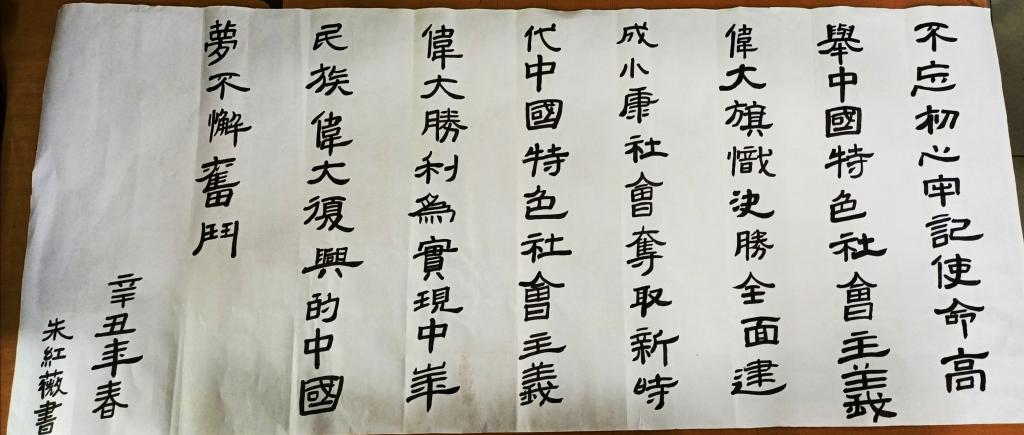 不忘初心牢記使命高
舉中國特色社會主義
偉大旗幟決勝全面建
成小康社會奪取新時
代中國特色社會主義
偉大勝利為實現中華
民族偉大復興的中國
夢不懈奮鬥
辛丑年春
朱紅薇書